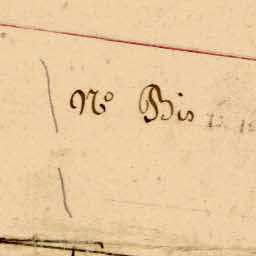 Nº Bis